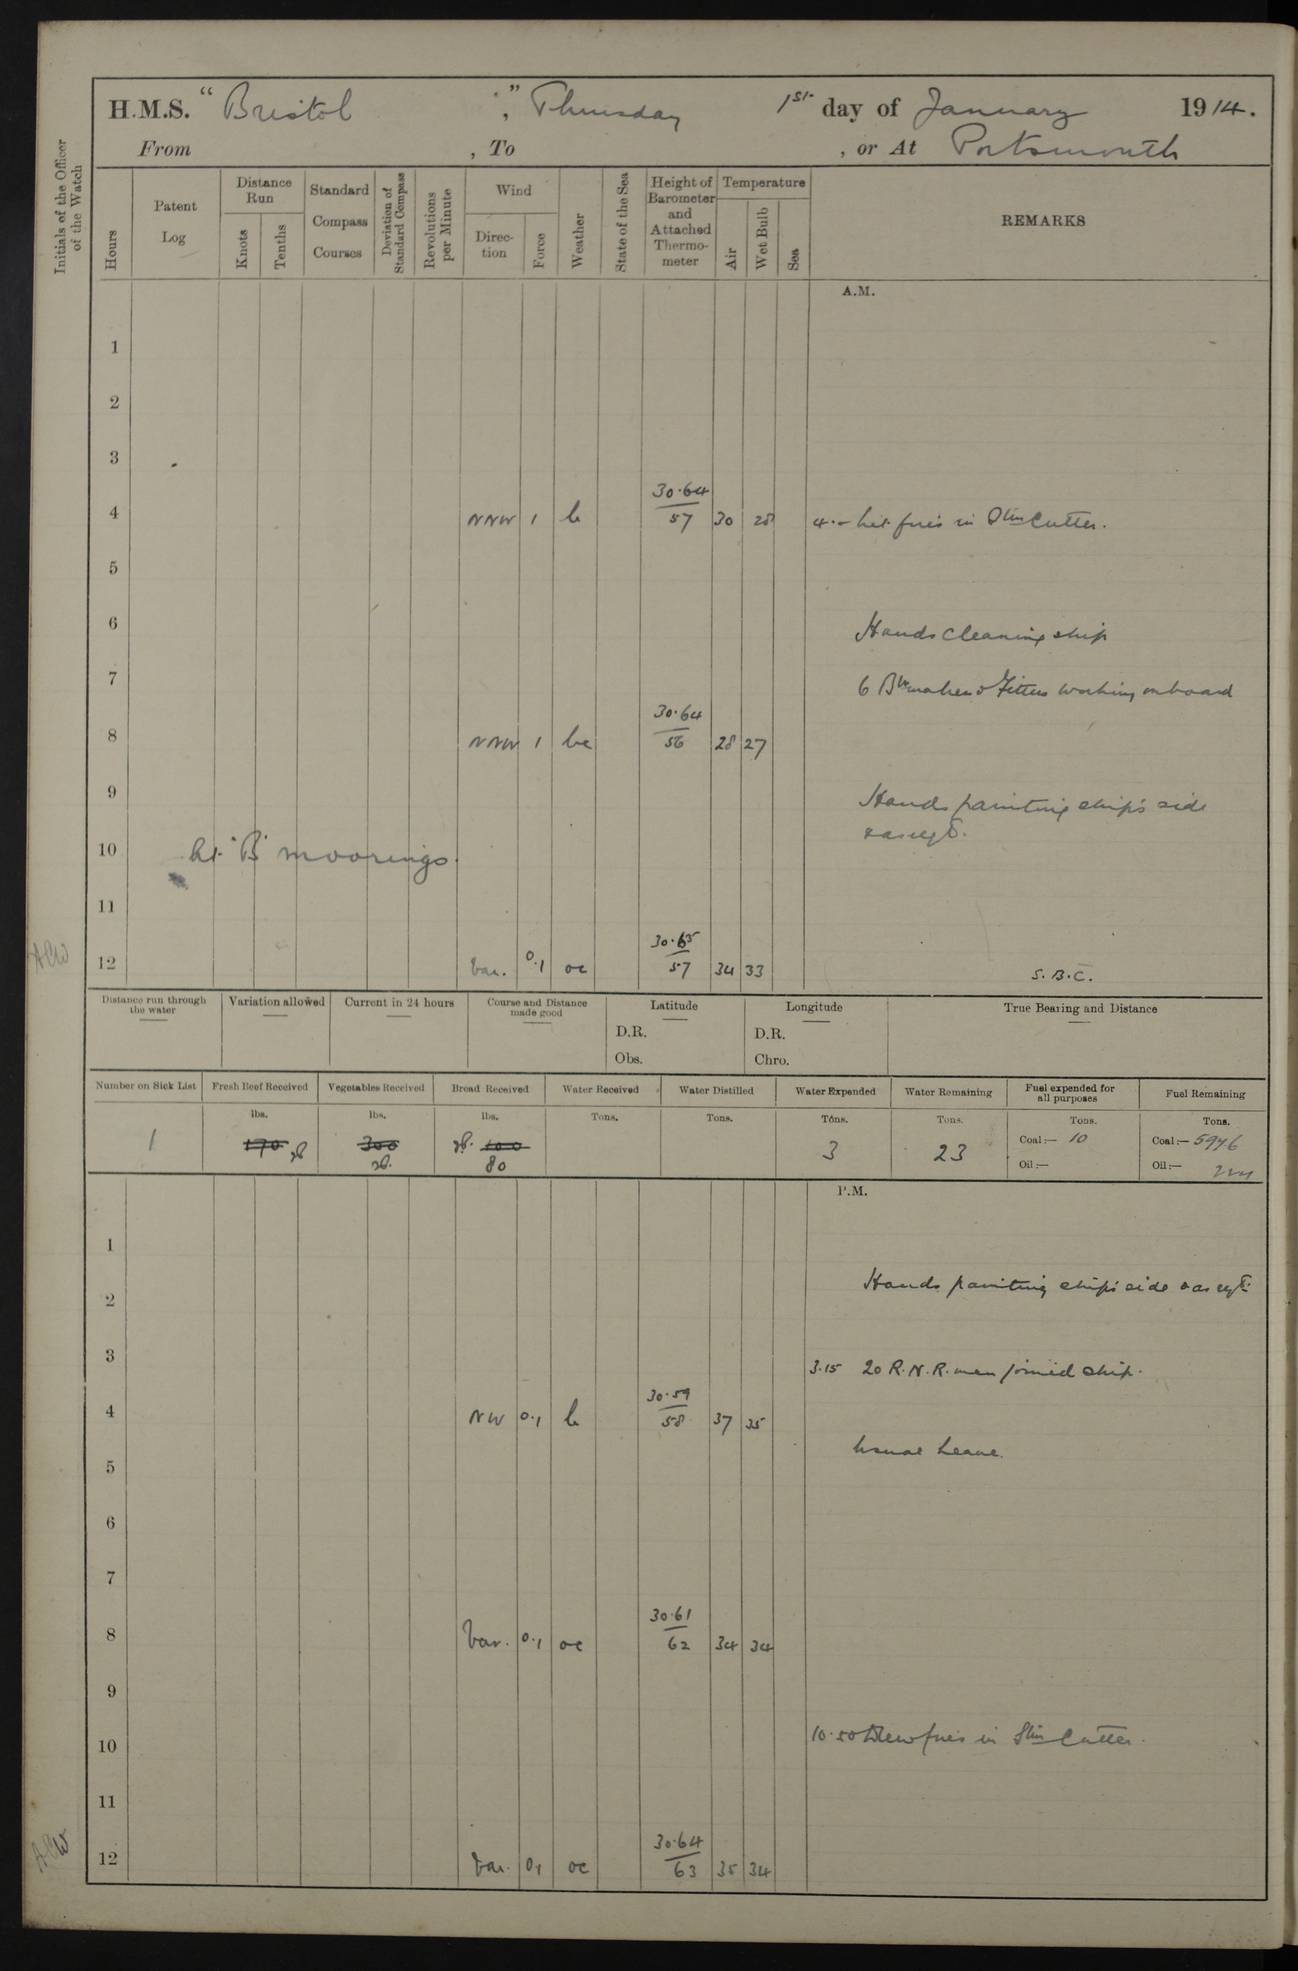 H.M.S. “ Bristol ”, Thursday 1st day of January 1914.
From , To , or At Portsmouth
Initials of the Officer of the Watch
Hours
Patent Log
Distance Run
Knots
Tenths
Standard Compass Courses
Deviation of Standard Compass
Revolutions per Minute
Wind
Direction
Force
Weather
State of the Sea
Height of Barometer and Attached Thermometer
Temperature
Air
Wet Bulb
Sea
REMARKS
A.M.
1
2
3
4 NNW 1 b 30.64 57 30 28 4.- Lit fires in Stm Cutter.
5
6 Hands cleaning ship
7 6 Blrmakers & Fitters working onboard
8 NNW 1 bc 30.64 56 28 27
9 Hands painting ship's side
& as reqd.
10 At "B" moorings.
11
ACW 12 Var. 0.1 oc 30.65 57 34 33 S.B.C.
Distance run through the water
Variation allowed
Current in 24 hours
Course and Distance made good
Latitude
D.R.
Obs.
Longitude
D.R.
Chro.
True Bearing and Distance
Number on Sick List
Fresh Beef Received
Vegetables Received
Bread Received
Water Received
Water Distilled
Water Expended
Water Remaining
Fuel expended for all purposes
Fuel Remaining
lbs. lbs. lbs. Tons. Tons. Tons. Tons. Tons. Tons.
1 170 300 100 3 23 Coal:— 10 Coal:— 5976
80 Oil:— Oil:— 224
P.M.
1
Hands painting ship's side & as reqd.
2
3 3.15 20 R.N.R. men joined ship.
4 NW 0.1 b 30.59 58 37 35
Usual Leave.
5
6
7
8 Var. 0.1 oc 30.61 62 34 34
9
10 10.50 Drew fires in Stm Cutter.
11
ACW 12 Var. 0.1 oc 30.64 63 35 34